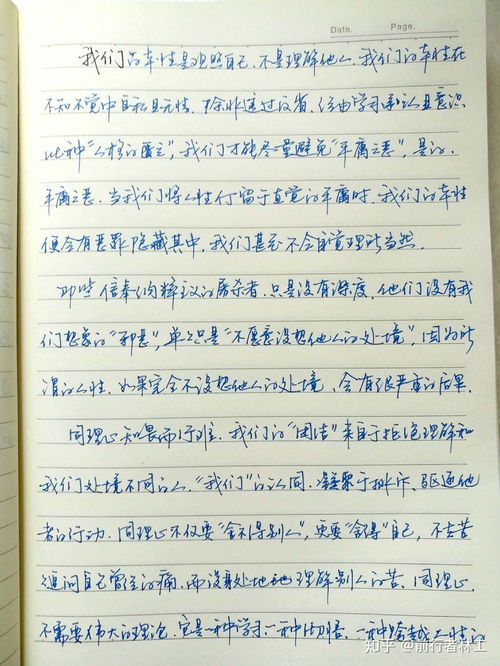 Date. Page.
我们的本性是观照自己,不是理解他人。我们的本性在
不知不觉中自私且无情。除非透过反省,经由学习承认且意识
此种“人格的匮乏”,我们才能尽量避免“平庸之恶”,是的,
平庸之恶。当我们将人性停留于直觉的平庸时,我们的本性
便会有恶罪隐藏其中,我们甚至不会自觉理所当然。
那些信奉纳粹主义的屠杀者,只是没有深度,他们没有我
们想象的“邪恶”,单单只是“不愿意设想他人的处境”,因为所
谓的人性,如果完全不设想他人的处境,会有很严重的后果。
同理心知易而行难。我们的“团结”来自于拒绝理解和
我们处境不同的人,“我们”的认同,凝聚于排斥、驱逐他
者的行动。同理心不仅要“舍不得别人”,更要“舍得”自己,不去苦
追问自己曾经的痛,而设身处地地理解别人的苦。同理心
不需要伟大的理论,它是一种学习,一种领悟,一种跨越人性的
知乎 @前行者林工